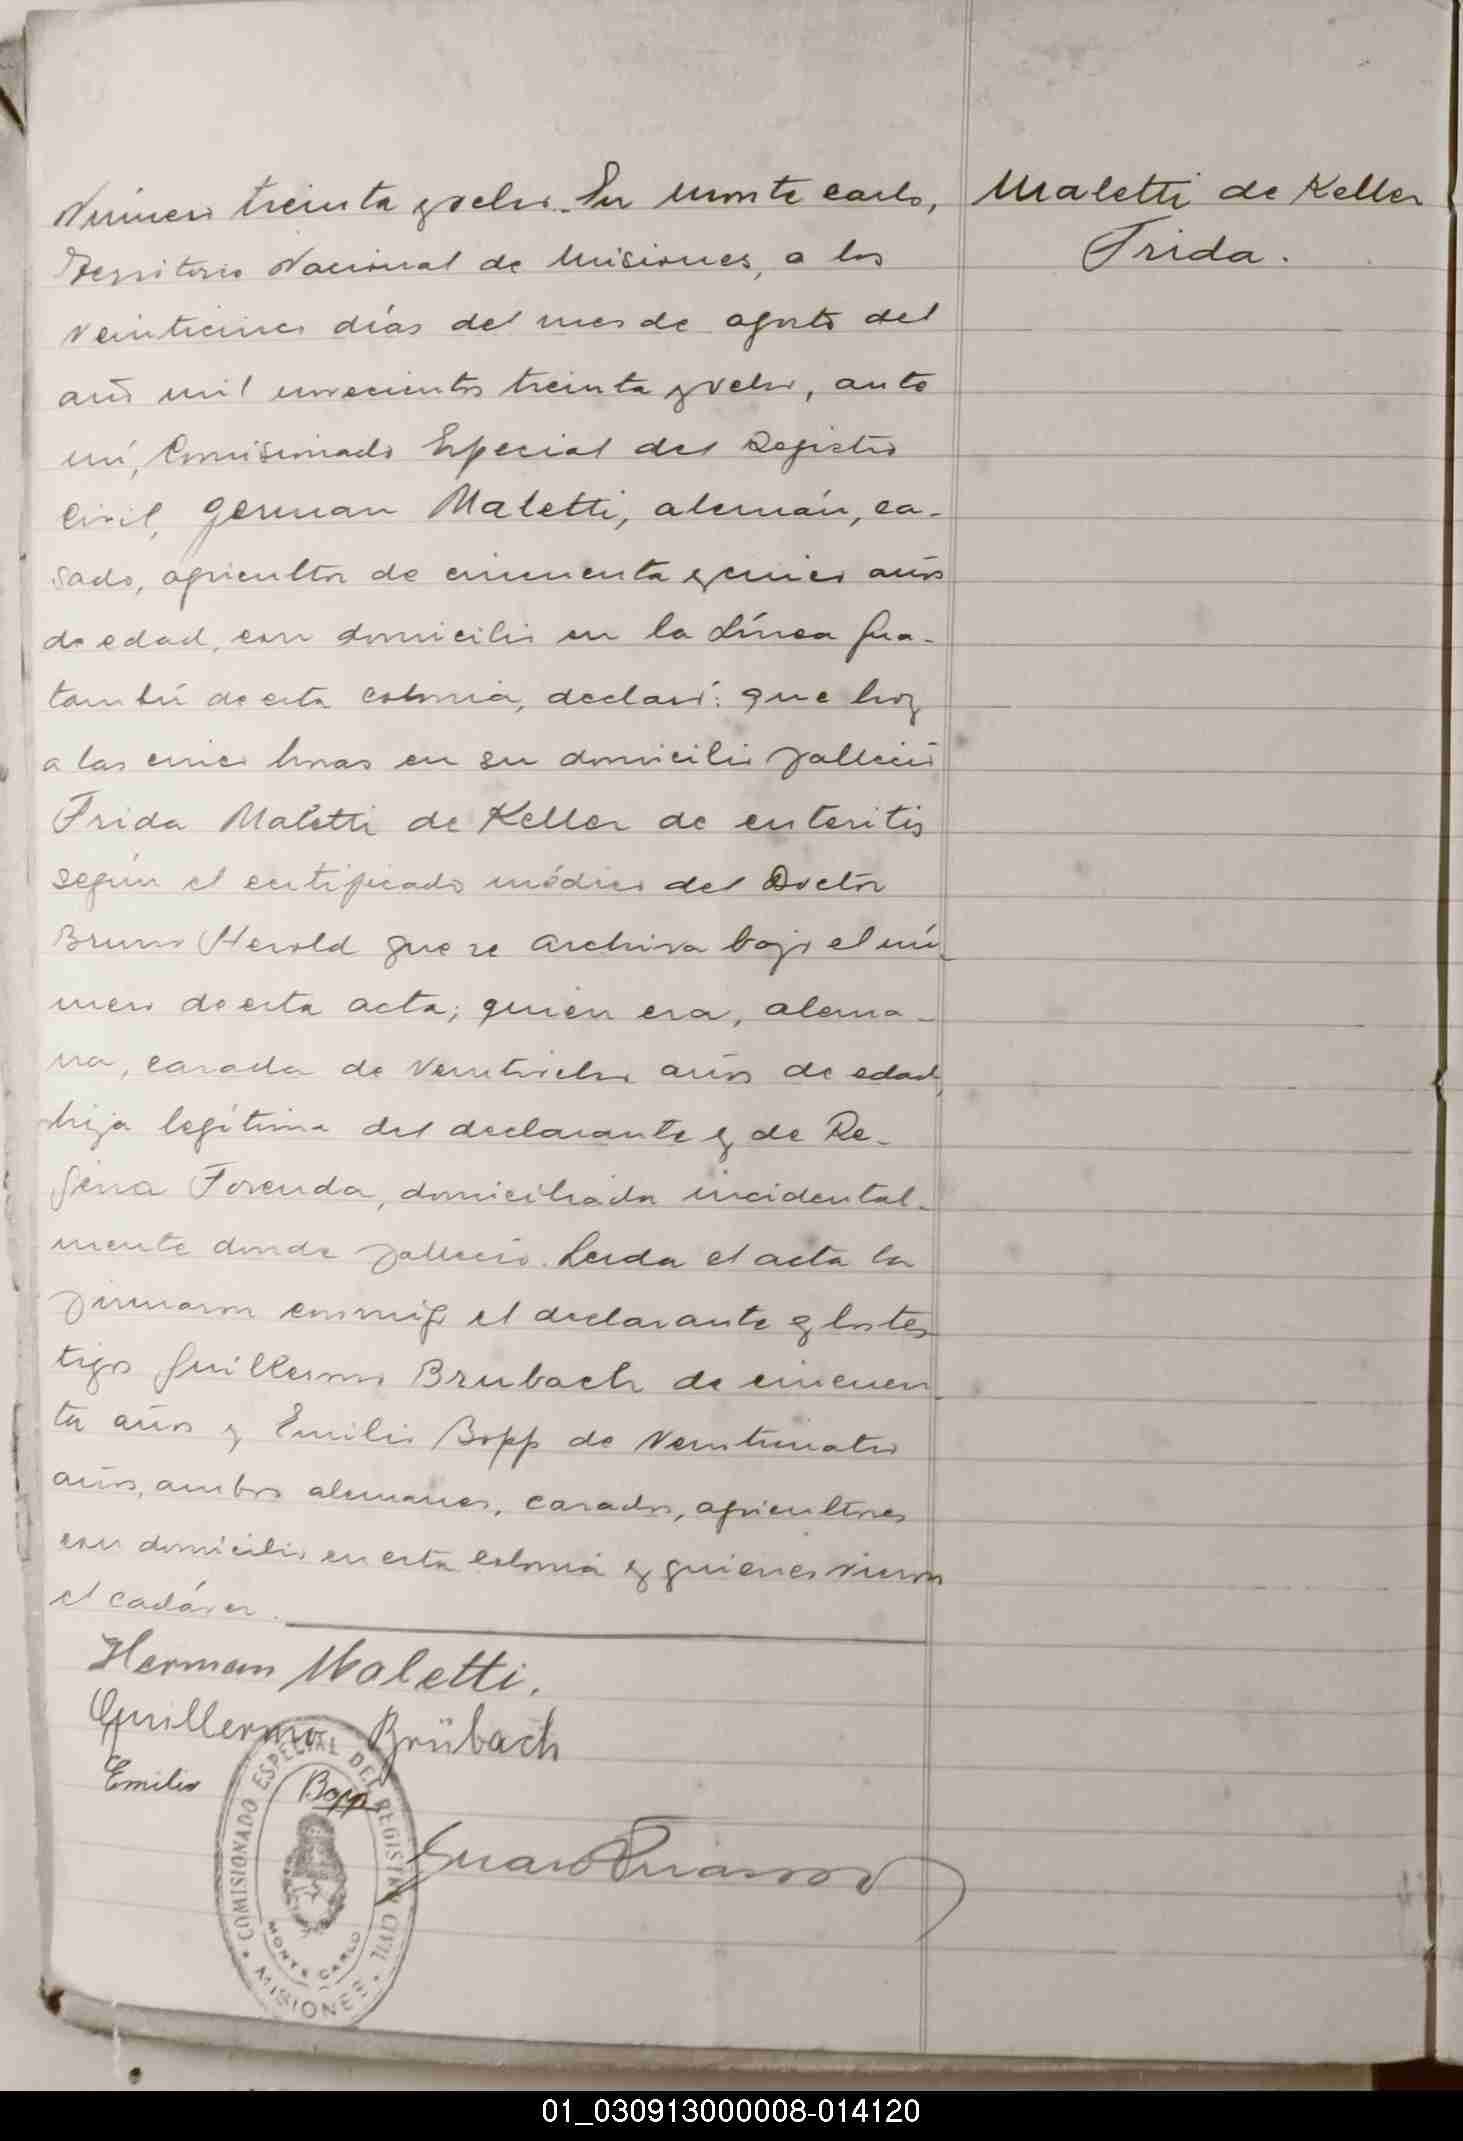 Número treinta y ocho. En Monte Carlo,
Territorio Nacional de Misiones, a los
veinticinco días del mes de agosto del
año mil novecientos treinta y ocho, ante
mí, Comisionado Especial del Registro
Civil, German Maletti, alemán, ca-
sado, agricultor de cincuenta y cinco años
de edad, con domicilio en la Línea Gua-
tambú de esta colonia, declaró: que hoy
a las cinco horas en su domicilio falleció
Frida Maletti de Keller de enteritis
según el certificado médico del Doctor
Bruno Herold que se archiva bajo el nú-
mero de esta acta; quien era, alema-
na, casada de veintiocho años de edad,
hija legítima del declarante y de Re-
gina Forenda, domiciliada incidental-
mente donde falleció. Leída el acta la
firmaron conmigo el declarante y los tes
tigos Guillermo Brubach de cincuen-
ta años y Emilio Bopp de veinticuatro
años, ambos alemanes, casados, agricultores
con domicilio en esta colonia y quienes vieron
el cadáver.
Maletti de Keller
Frida.
Herman Maletti.
Guillermo Brübach
Emilio Bopp
COMISIONADO ESPECIAL DEL REGISTRO CIVIL
MONTE CARLO
MISIONES
01_030913000008-014120